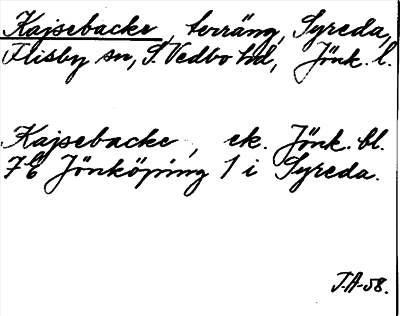 Kajsebacke, terräng, Syreda,
Flisby sn, S. Vedbo hd, Jönk. l.
Kajsebacke, ek. Jönk. bl.
7E Jönköping 1 i Syreda.
J.A-58.